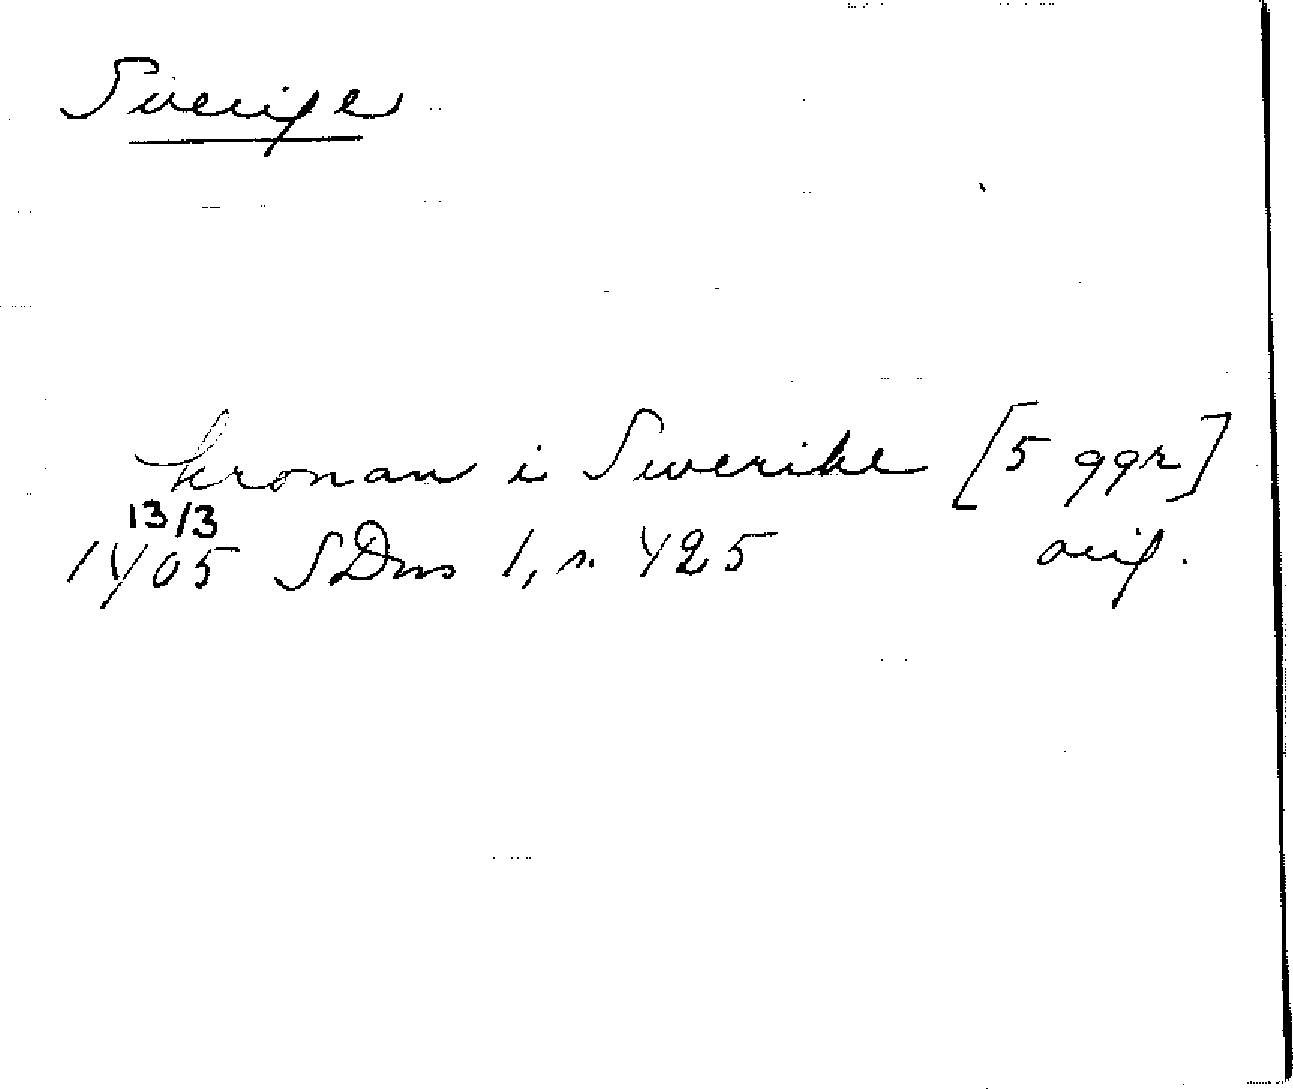 Sverige
kronan i Swerike [5 ggr]
13/3
1405 SDns 1, s. 425 orig.